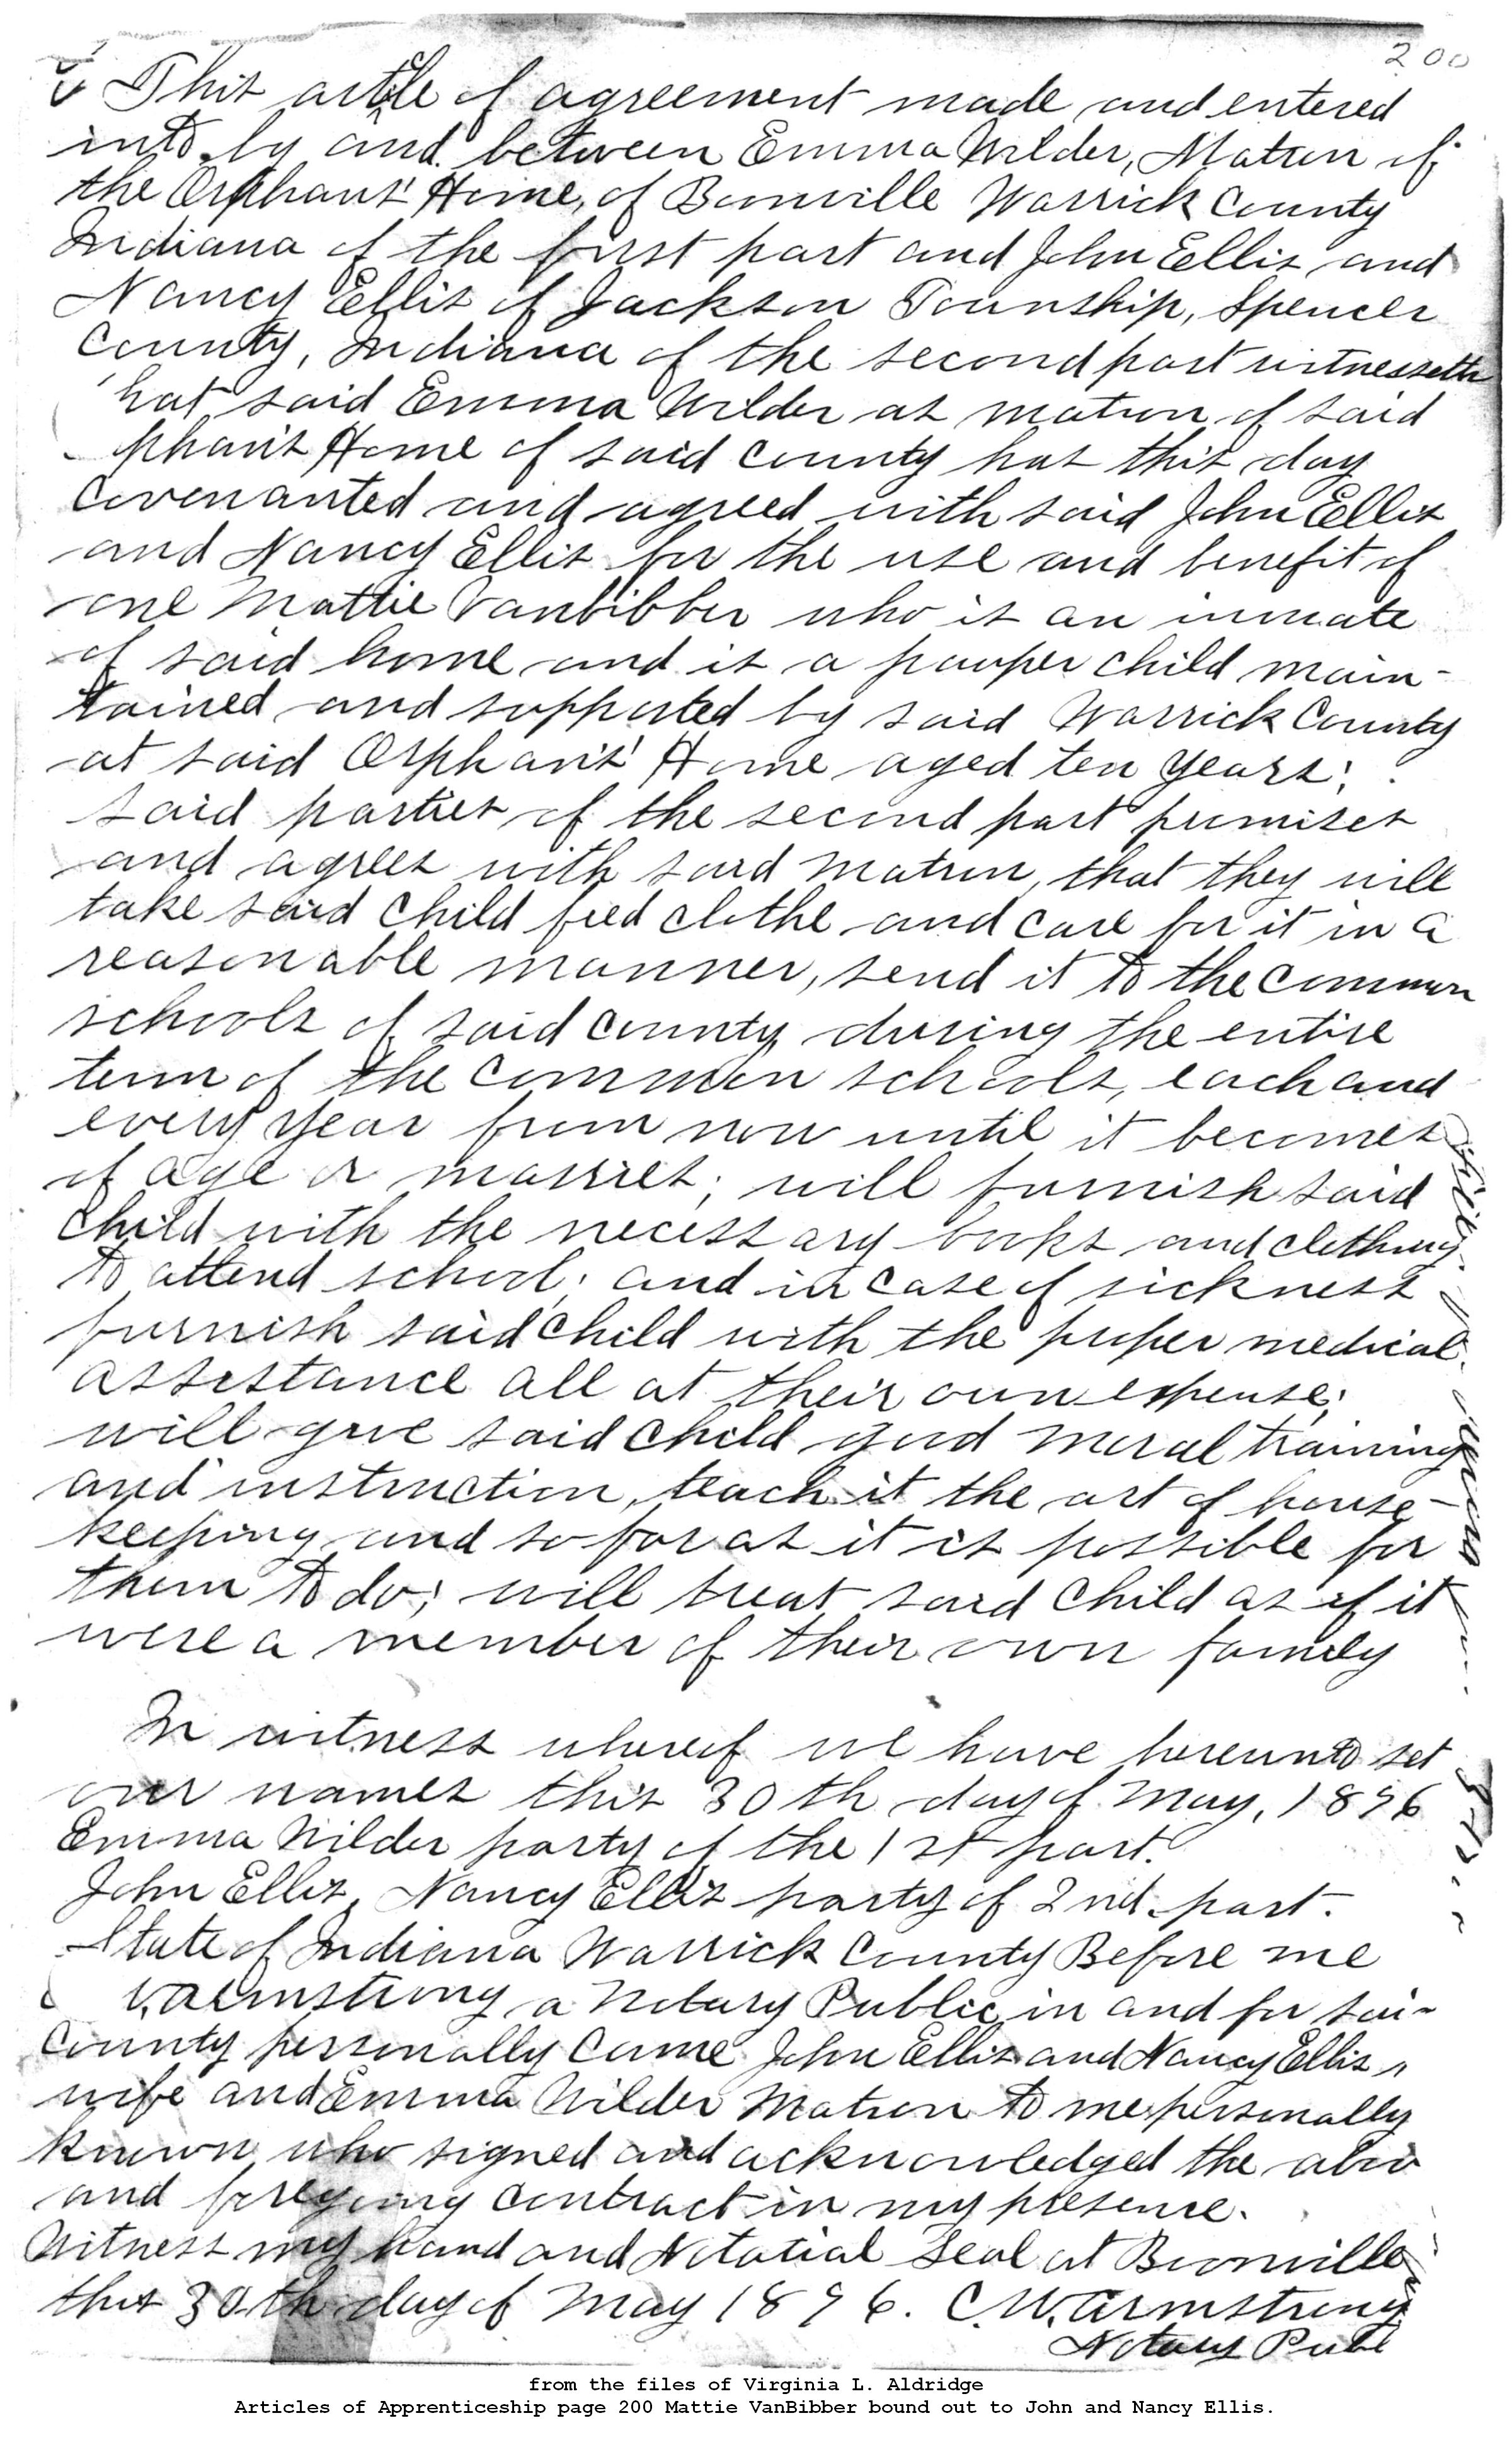 200
This article of agreement made and entered
into by and between Emma Wilder, Matron of
the Orphans' Home, of Boonville Warrick County
Indiana of the first part and John Ellis and
Nancy Ellis of Jackson Township, Spencer
County, Indiana of the second part witnesseth
hat said Emma Wilder as matron of said
phan's Home of said County has this day
Covenanted and agreed with said John Ellis
and Nancy Ellis for the use and benefit of
one Mattie VanBibber who is an inmate
of said home and is a pauper child main-
tained and supported by said Warrick County
at said Orphan's' Home aged ten years;
said parties of the second part promises
and agrees with said Matron, that they will
take said child feed clothe and care for it in a
reasonable manner, send it to the common
schools of said County during the entire
term of the common schools, each and
every year from now until it becomes
of age or marries; will furnish said
child with the necessary books and clothing
to attend school; and in case of sickness
furnish said child with the proper medical
assistance all at their own expense;
will give said child good moral training
and instruction, teach it the art of house-
keeping and so far as it is possible for
them to do; will treat said child as if it
were a member of their own family
In witness whereof we have hereunto set
our names this 30th day of May, 1896
Emma Wilder party of the 1st part.
John Ellis, Nancy Ellis party of 2nd part.
State of Indiana Warrick County Before me
W. Armstrong a Notary Public in and for sai
County personally came John Ellis and Nancy Ellis
wife and Emma Wilder Matron to me personally
known who signed and acknowledged the abov
and foregoing contract in my presence.
Witness my hand and Notatial Seal at Boonville
this 30th day of May 1896. C.W. Armstrong
Notary Publ
from the files of Virginia L. Aldridge
Articles of Apprenticeship page 200 Mattie VanBibber bound out to John and Nancy Ellis.